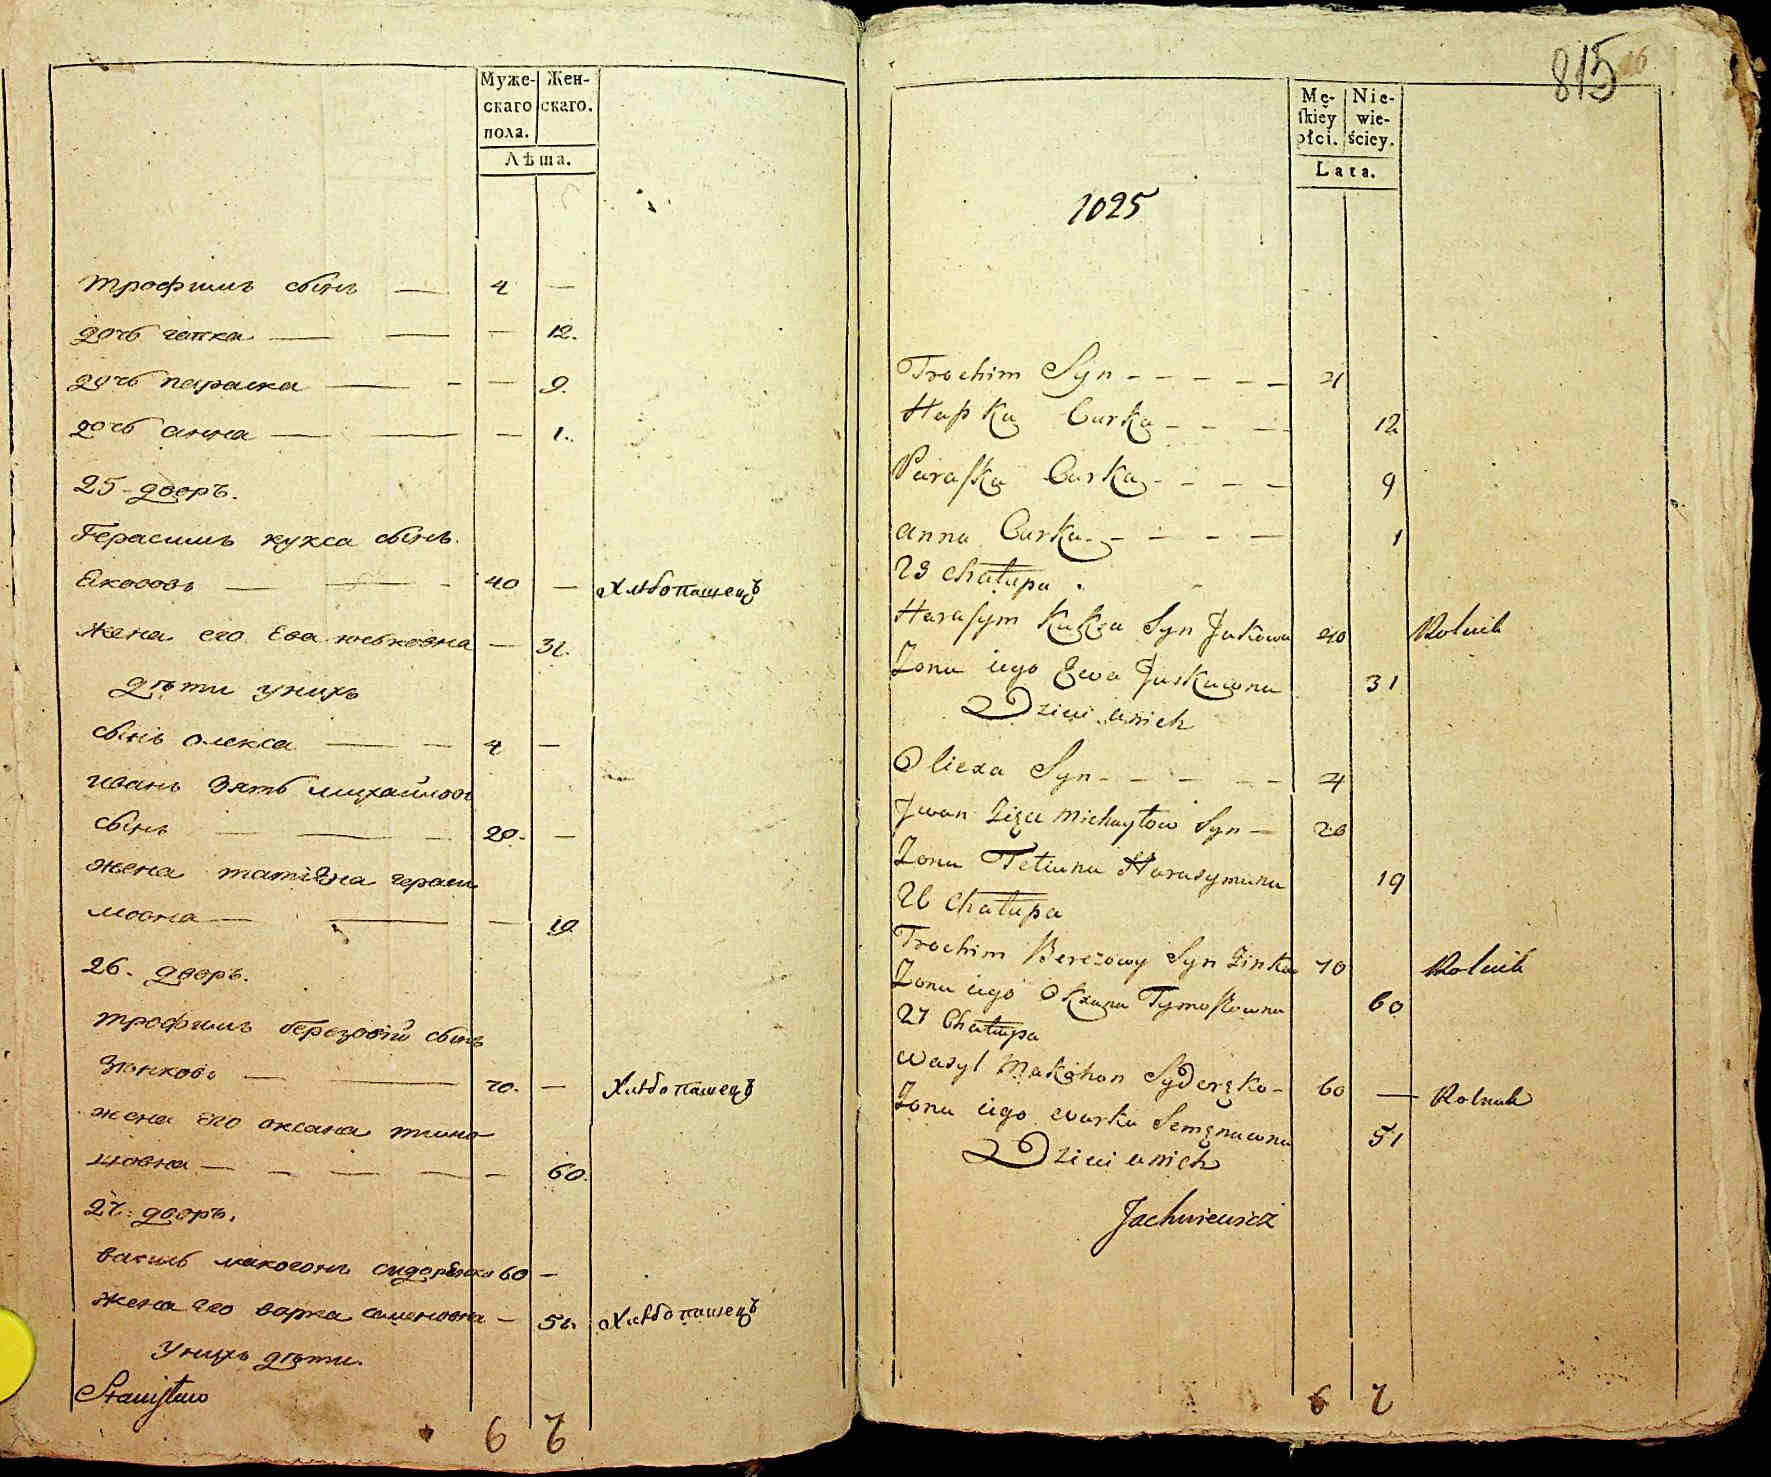 Муже- Жен-
скаго скаго.
пола.
Лѣта.
трофимъ сынъ — 4 —
дочь гапка — — — 12.
дочь параска — - — 9.
дочь анна — — — 1.
25 дворъ.
Герасимъ кукса сынъ
Якововъ — — - 40 — Хлѣбопашецъ
жена его Ева юськовна — 31.
дѣти унихъ
сынъ олекса — — 4 —
иванъ зять михайловъ
сынъ — — - 20. —
жена татіяна гераси
мовна — — — 19
26. дворъ.
трофимъ березовій сынъ
Зѣнковъ — — 70. — Хлѣбопашецъ
жена его оксана тимо
шовна — — — — — — 60.
27: дворъ.
василь макогонъ сидоренко 60 —
жена его варка семеновна — 51. Хлѣбопашецъ
унихъ дѣти.
Stanisław
6 7
815 16
Mę- Nie-
ſkiey wie-
płci. ściey.
Lata.
1025
Trochim Syn - - - - - 4
Hapka Curka - - - 12
Paraſka Curka - - - - 9
anna Curka - - - - 1
25 Chałupa .
Haraſym Kukſa Syn Jakowa 40 Rolnik
Zona iego Ewa Juskowna 31
Dzieci unich
Olexa Syn - - - - - 4
Jwan Zięć Michayłow Syn — 20
Zona Tetiana Harasymuna 19
26 Chałupa
Trochim Berezowy Syn Zinkow 70 Rolnik
Zona iego Oxana Tymoſzowna 60
27 Chałupa
Wasyl Makohon Syderęko - 60 — Rolnik
Zona iego Warka Semęnowna 51
Dzieci unich
Jachniewicz
6 7